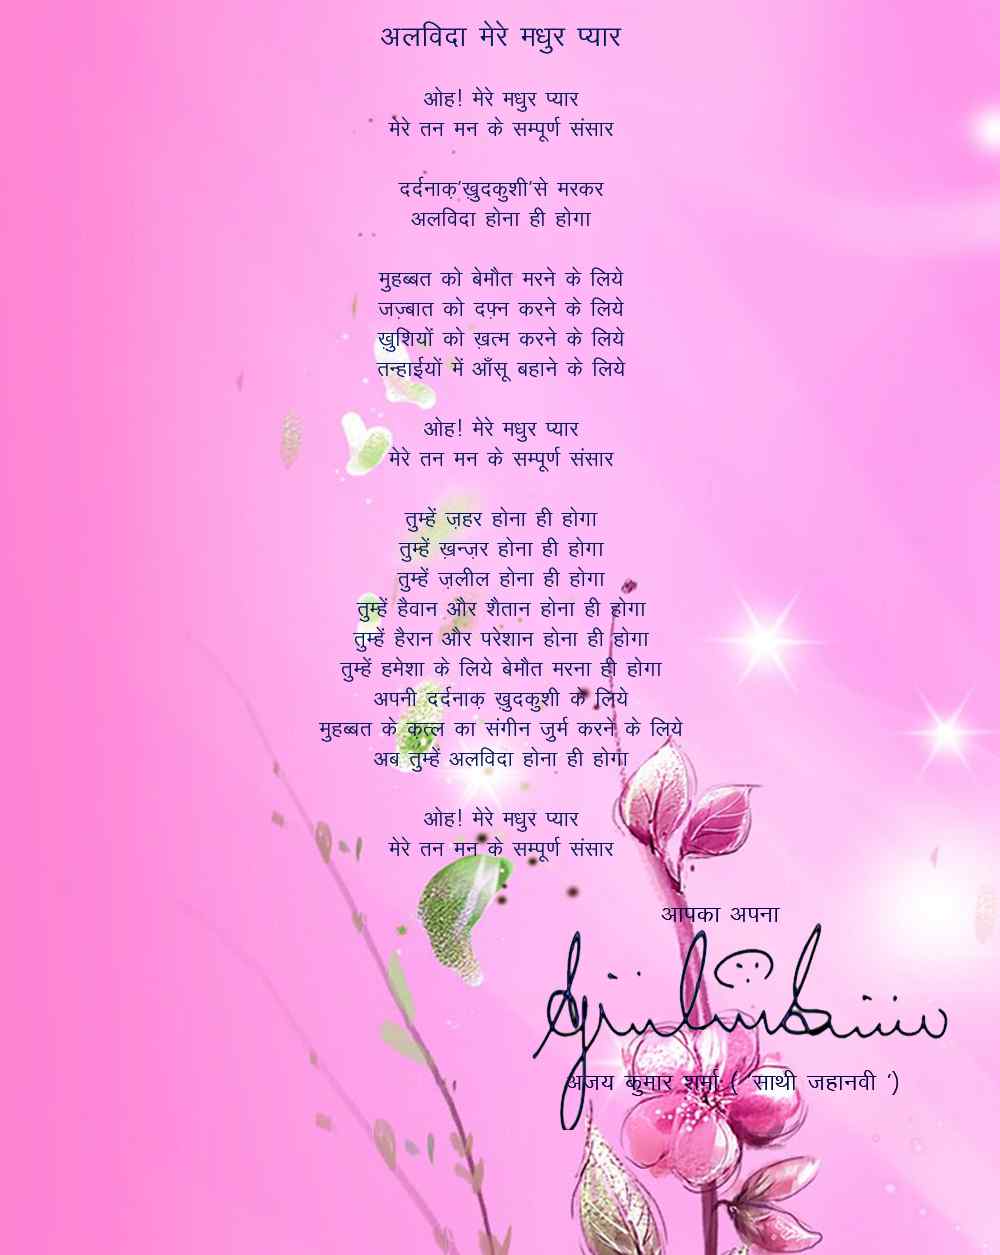 अलविदा मेरे मधुर प्यार
ओह! मेरे मधुर प्यार
मेरे तन मन के सम्पूर्ण संसार
दर्दनाक़'ख़ुदकुशी'से मरकर
अलविदा होना ही होगा
मुहब्बत को बेमौत मरने के लिये
जज़्बात को दफ़्न करने के लिये
ख़ुशियों को ख़त्म करने के लिये
तन्हाईयों में आँसू बहाने के लिये
ओह! मेरे मधुर प्यार
मेरे तन मन के सम्पूर्ण संसार
तुम्हें ज़हर होना ही होगा
तुम्हें ख़न्ज़र होना ही होगा
तुम्हें ज़लील होना ही होगा
तुम्हें हैवान और शैतान होना ही होगा
तुम्हें हैरान और परेशान होना ही होगा
तुम्हें हमेशा के लिये बेमौत मरना ही होगा
अपनी दर्दनाक़ ख़ुदकुशी के लिये
मुहब्बत के क़त्ल का संगीन जुर्म करने के लिये
अब तुम्हें अलविदा होना ही होगा
ओह! मेरे मधुर प्यार
मेरे तन मन के सम्पूर्ण संसार
आपका अपना
अजय कुमार शर्मा ( 'साथी जहानवी ')